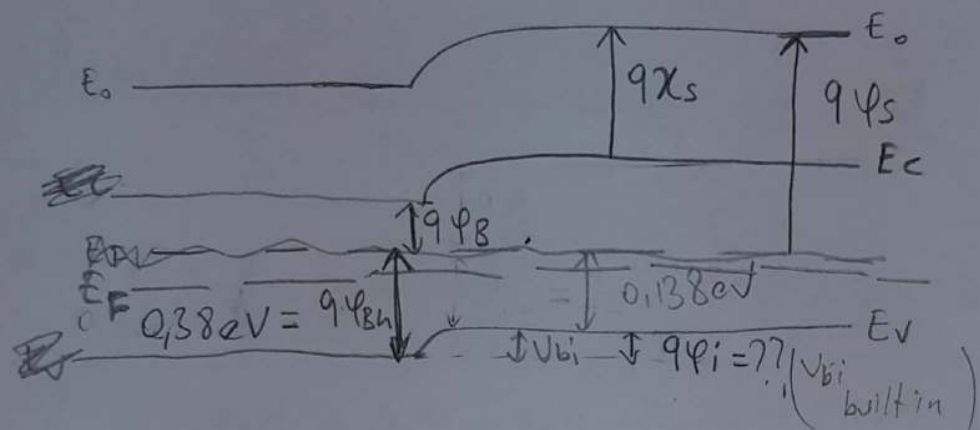 E₀
E₀
qχs
qφs
Ec
qφB
EF
0,38eV = qφBh
= 0,138eV
Ev
Vbi
qφi = ??
(Vbi
built in)